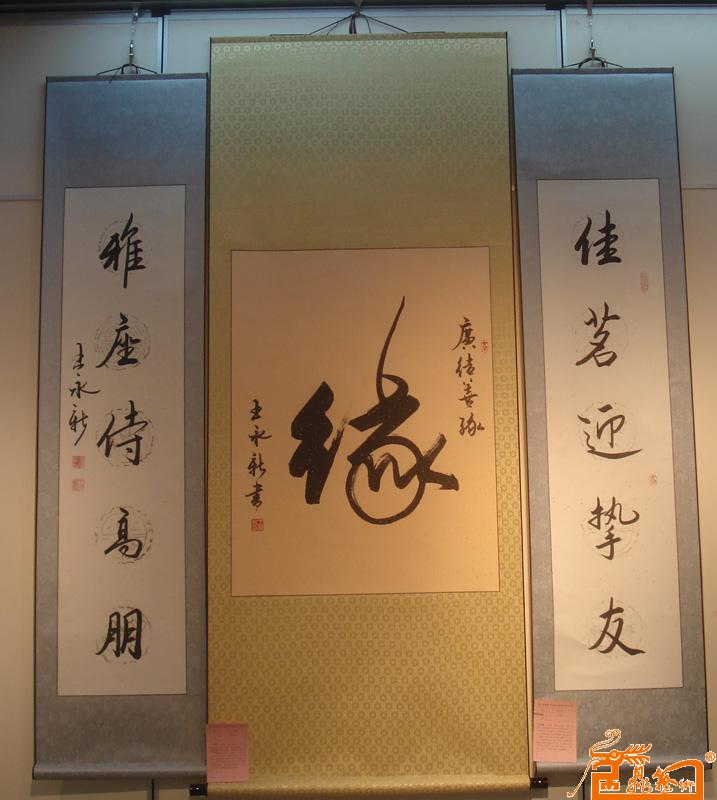 佳茗迎挚友
廣结善缘
缘
王永新書
雅座侍高朋
王永新